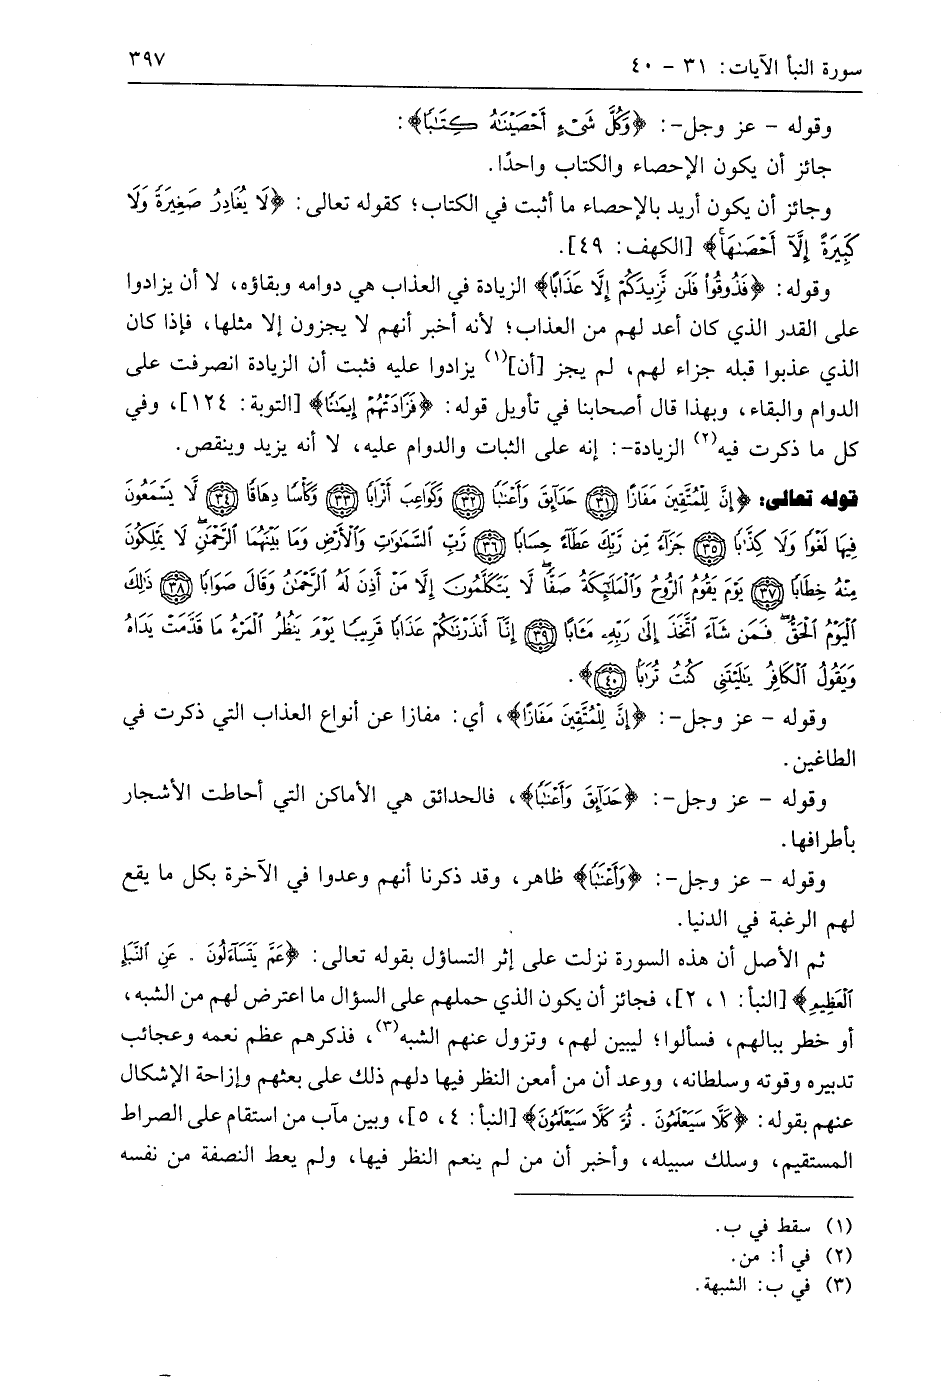 سورة النبأ الآيات: ٣١ - ٤٠ ٣٩٧
وقوله - عز وجل-: ﴿وَكُلَّ شَيْءٍ أَحْصَيْنَاهُ كِتَابًا﴾:
جائز أن يكون الإحصاء والكتاب واحدًا.
وجائز أن يكون أريد بالإحصاء ما أثبت في الكتاب؛ كقوله تعالى: ﴿لَا يُغَادِرُ صَغِيرَةً وَلَا
كَبِيرَةً إِلَّا أَحْصَاهَا﴾ [الكهف: ٤٩].
وقوله: ﴿فَذُوقُوا فَلَن نَّزِيدَكُمْ إِلَّا عَذَابًا﴾ الزيادة في العذاب هي دوامه وبقاؤه، لا أن يزادوا
على القدر الذي كان أعد لهم من العذاب؛ لأنه أخبر أنهم لا يجزون إلا مثلها، فإذا كان
الذي عذبوا قبله جزاء لهم، لم يجز [أن](١) يزادوا عليه فثبت أن الزيادة انصرفت على
الدوام والبقاء، وبهذا قال أصحابنا في تأويل قوله: ﴿فَزَادَتْهُمْ إِيمَانًا﴾ [التوبة: ١٢٤]، وفي
كل ما ذكرت فيه(٢) الزيادة-: إنه على الثبات والدوام عليه، لا أنه يزيد وينقص.
قوله تعالى: ﴿إِنَّ لِلْمُتَّقِينَ مَفَازًا ٣١ حَدَائِقَ وَأَعْنَابًا ٣٢ وَكَوَاعِبَ أَتْرَابًا ٣٣ وَكَأْسًا دِهَاقًا ٣٤ لَّا يَسْمَعُونَ
فِيهَا لَغْوًا وَلَا كِذَّابًا ٣٥ جَزَاءً مِّن رَّبِّكَ عَطَاءً حِسَابًا ٣٦ رَّبِّ السَّمَاوَاتِ وَالْأَرْضِ وَمَا بَيْنَهُمَا الرَّحْمَٰنِ لَا يَمْلِكُونَ
مِنْهُ خِطَابًا ٣٧ يَوْمَ يَقُومُ الرُّوحُ وَالْمَلَائِكَةُ صَفًّا لَّا يَتَكَلَّمُونَ إِلَّا مَنْ أَذِنَ لَهُ الرَّحْمَٰنُ وَقَالَ صَوَابًا ٣٨ ذَٰلِكَ
الْيَوْمُ الْحَقُّ فَمَن شَاءَ اتَّخَذَ إِلَىٰ رَبِّهِ مَآبًا ٣٩ إِنَّا أَنذَرْنَاكُمْ عَذَابًا قَرِيبًا يَوْمَ يَنظُرُ الْمَرْءُ مَا قَدَّمَتْ يَدَاهُ
وَيَقُولُ الْكَافِرُ يَا لَيْتَنِي كُنتُ تُرَابًا ٤٠﴾.
وقوله - عز وجل-: ﴿إِنَّ لِلْمُتَّقِينَ مَفَازًا﴾، أي: مفازا عن أنواع العذاب التي ذكرت في
الطاغين.
وقوله - عز وجل-: ﴿حَدَائِقَ وَأَعْنَابًا﴾، فالحدائق هي الأماكن التي أحاطت الأشجار
بأطرافها.
وقوله - عز وجل-: ﴿وَأَعْنَابًا﴾ ظاهر، وقد ذكرنا أنهم وعدوا في الآخرة بكل ما يقع
لهم الرغبة في الدنيا.
ثم الأصل أن هذه السورة نزلت على إثر التساؤل بقوله تعالى: ﴿عَمَّ يَتَسَاءَلُونَ . عَنِ النَّبَإِ
الْعَظِيمِ﴾ [النبأ: ١ ، ٢]، فجائز أن يكون الذي حملهم على السؤال ما اعترض لهم من الشبه،
أو خطر ببالهم، فسألوا؛ ليبين لهم، وتزول عنهم الشبه(٣)، فذكرهم عظم نعمه وعجائب
تدبيره وقوته وسلطانه، ووعد أن من أمعن النظر فيها دلهم ذلك على بعثهم وإزاحة الإشكال
عنهم بقوله: ﴿كَلَّا سَيَعْلَمُونَ . ثُمَّ كَلَّا سَيَعْلَمُونَ﴾ [النبأ: ٤، ٥]، وبين مآب من استقام على الصراط
المستقيم، وسلك سبيله، وأخبر أن من لم ينعم النظر فيها، ولم يعط النصفة من نفسه
(١) سقط في ب.
(٢) في أ: من.
(٣) في ب: الشبهة.